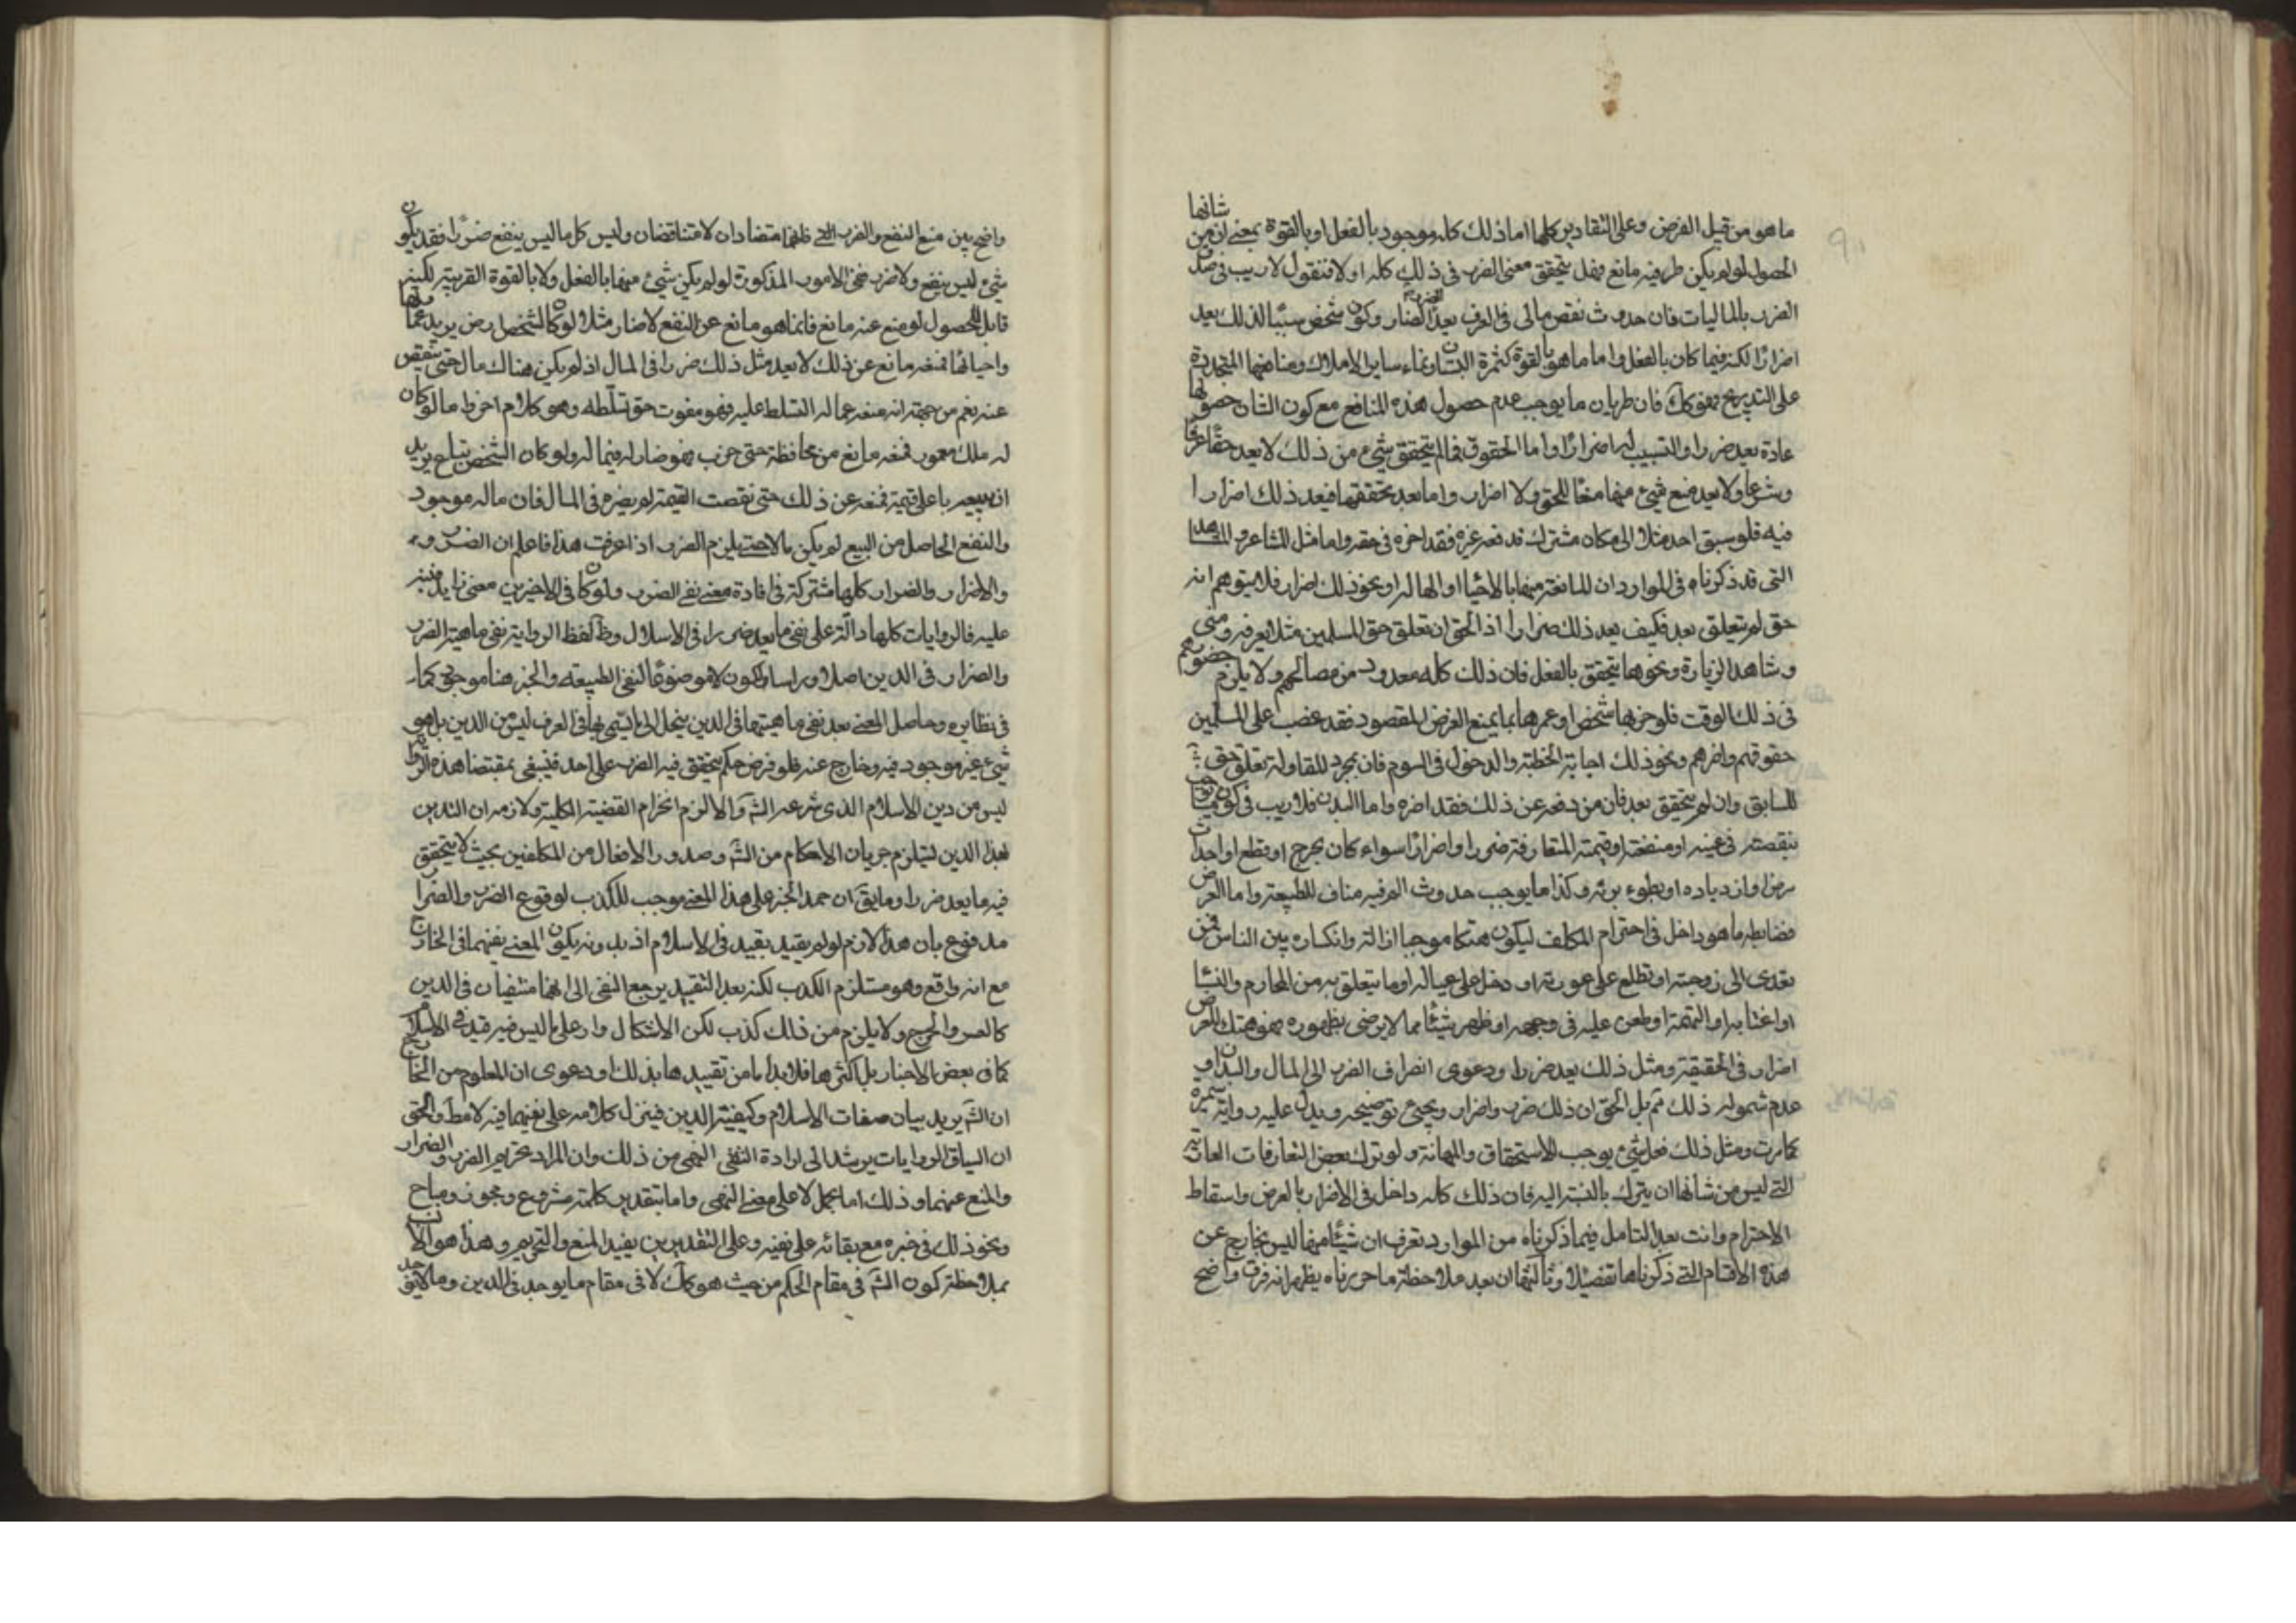 ما هو من قبيل الفرض وعلى التقادير كلها اما ذلك كله موجود بالفعل او بالقوة بمعنى ان من شانها
الحصول لو لم يكن طرفيه مانع فهل يتحقق معنى الضرر فى ذلك كله او لا فنقول لا ريب فى صدق
الضرر بالماليات فان حدوث نقص مالى فى العرف يعد الضار وكون شخص سببا لذلك يعد
اضرارا لكنه فيما كان بالفعل واما ما هو بالقوة كثمرة البستان ونماء ساير الاملاك ومنافعها المتجددة
على التدريج فهو كك فان طريان ما يوجب عدم حصول هذه المنافع مع كون الشان حصولها
عادة يعد ضررا والتسبيب له اضرارا واما الحقوق فما لم يتحقق شىء من ذلك لا يعد حقا عرفا
وشرعا ولا يعد منع شىء منها منعا للحق ولا اضرار واما بعد تحققها فيعد ذلك اضرارا
فيه فلو سبق احد مثلا الى مكان مشترك فدفعه غيره فقد اضره فى حقه واما مثل المشاعر والمشاهد
التى قد ذكرناه فى الموارد ان الممانعة منها بالاحياء او الهاله او نحو ذلك اضرار فلا يتوهم انه
حق لم يتعلق بعد فكيف يعد ذلك ضرارا اذ الحق ان تعلق حق المسلمين مثلا بعرفه ومنى
وشاهد الزيارة ونحوها يتحقق بالفعل فان ذلك كله معدود من مصالحهم ولا يلزم حضورهم
فى ذلك الوقت فلو خربها شخص او عمرها بما يمنع الغرض المقصود فقد غصب على المسلمين
حقوقهم واضرهم ونحو ذلك اجابة الخطبة والدخول فى السوم فان بمجرد المقاولة تعلق حق
للسابق وان لم يتحقق بعد فان من دفعه عن ذلك فقد اضره واما البدن فلا ريب فى كون ما يوجب
نقصه فى عينه او منفعته او قيمته المتعارفة ضررا واضرارا سواء كان بجرح او قطع او احداث
مرض او ازدياده او بطوء برئه وكذا ما يوجب حدوث الم فيه مناف للطبيعة واما العرض
فضابطه ما هو داخل فى احترام المكلف ليكون هتكا موجبا ازالته وانكساره بين الناس فمن
تعدى الى زوجته او تطلع على عورته او دخل على عياله او ما يتعلق به من المحارم والنساء
او اغتابه او اتهمه او طعن عليه فى وجهه او ظهر شيئا مما لا يرضى بظهوره فهو هتك للعرض
اضرار فى الحقيقة ومثل ذلك يعد ضررا ودعوى انصراف الضرر الى المال والبدن او
عدم شموله ذلك ثم بل الحق ان ذلك ضرر واضرار ويجىء توضيحه ويدل عليه رواية سمرة
كما مرت ومثل ذلك فعل شىء يوجب الاستحقاق والمهانة ولو ترك بعض التعارفات العادية
التى ليس من شانها ان يترك بالنسبة اليه فان ذلك كله داخل فى الاضرار بالعرض واسقاط
الاحترام وانت بعد التامل فيما ذكرناه من الموارد تعرف ان شيئا منها ليس بخارج عن
هذه الاقسام التى ذكرناها تفصيلا وثالثها ان بعد ملاحظة ما حررناه يظهر انه فرق واضح
واضح بين منع النفع والضرر فانهما متضادان لا متناقضان وليس كل ما ليس بنفع ضررا فقد يكون
شىء ليس بنفع ولا ضرر ففى الامور المذكورة لو لم يكن شىء منها بالفعل ولا بالقوة القريبة لكنه
قابل للحصول لو منع عنه مانع فانما هو مانع عن النفع لا ضار مثلا لو كان لشخص ارض يريد عمارتها
واحيائها فمنعه مانع عن ذلك لا يعد مثل ذلك ضررا فى المال اذ لم يكن هناك مال حتى ينقص
عنه نعم من جهة انه منعه عما له التسلط عليه فهو مفوت حق تسلطه وهو كلام اخر واما لو كان
له ملك معمور فمنعه مانع من محافظته حتى خرب فهو ضار له فيما له ولو كان الشخص يريد
ان يبيعه باعلى قيمة فمنعه عن ذلك حتى نقصت القيمة لم يضره فى المال فان ماله موجود
والنفع الحاصل من البيع لم يكن مالا حتى يلزم الضرر اذا عرفت هذا فاعلم ان الضرر
والاضرار والضرار كلها مشتركة فى افادة معنى نفى الضرر ولو كان فى الاخيرين معنى زايد
عليه فالروايات كلها دالة على نفى ما يعد ضررا فى الاسلام وظ لفظ الرواية نفى ماهية الضرر
والضرار فى الدين اصلا وراسا ولكون لا موضوعا لنفى الطبيعة والخبر هنا موجود كما
فى نظايره وحاصل المعنى بعد نفى ماهيتهما فى الدين ينحل الى ما يسمى بهما فى العرف ليس من الدين بل هو
شىء غير موجود فيه وخارج عنه فلو فرض حكم يتحقق فيه الضرر على احد فينبغى بمقتضا هذه الرواية
ليس من دين الاسلام الذى شرعه الش والا لزم انخرام القضية الكلية ولازمه ان التدين
بهذا الدين يستلزم جريان الاحكام من الش وصدور الافعال من المكلفين بحيث لا يتحقق
فيه ما يعد ضررا وما يق ان حمل الخبر على هذا المعنى موجب للكذب لوقوع الضرر والضرار
مدفوع بان هذا لازم لو لم يقيد بقيد فى الاسلام اذ بدونه يكون المعنى نفيهما فى الخارج
مع انه واقع وهو مستلزم الكذب لكنه بعد التقييد يرجع النفى الى انهما منتفيان فى الدين
كالعسر والحرج ولا يلزم من ذلك كذب لكن الاشكال وارد على ما ليس فيه قيد فى الاسلام
كما فى بعض الاخبار بل اكثرها فلا بد اما من تقييدها بذلك او دعوى ان المعلوم من الخارج
ان الش يريد بيان صفات الاسلام وكيفية الدين فينزل كلامه على نفيهما فيه لا مط والحق
ان السياق الروايات يرشد الى ارادة النفى النهى من ذلك وان المراد تحريم الضرر والضرار
والمنع عنهما وذلك اما بحمل لا على معنى النهى واما بتقدير كلمة مشروع ومجوز ومباح
ونحو ذلك فى خبره مع بقائه على نفيه وعلى التقديرين يفيد المنع والتحريم وهذا هو الا
بملاحظة كون الش فى مقام الحكم من حيث هو كك لا فى مقام ما يوجد فى الدين وما لا يوجد